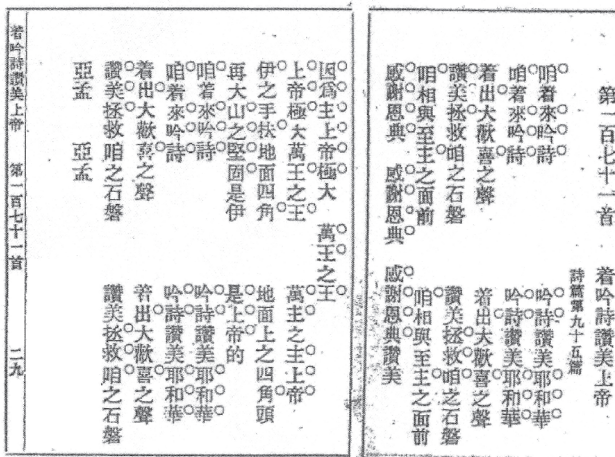 第一百七十一首 着吟詩讚美上帝
詩篇第九十五篇
咱着來吟詩 吟詩讚美耶和華
咱着來吟詩 吟詩讚美耶和華
着出大歡喜之聲 着出大歡喜之聲
讚美拯救咱之石磐 讚美拯救咱之石磐
咱相與至主之面前 咱相與至主之面前
感謝恩典 感謝恩典 感謝恩典讚美
因爲主上帝極大 萬王之王
上帝極大萬王之王 萬主之主上帝
伊之手扶地面四角 地面上之四角頭
再大山之堅固是伊 是上帝的
咱着來吟詩 吟詩讚美耶和華
咱着來吟詩 吟詩讚美耶和華
着出大歡喜之聲 着出大歡喜之聲
讚美拯救咱之石磐 讚美拯救咱之石磐
亞孟 亞孟
着吟詩讚美上帝 第一百七十一首 二九